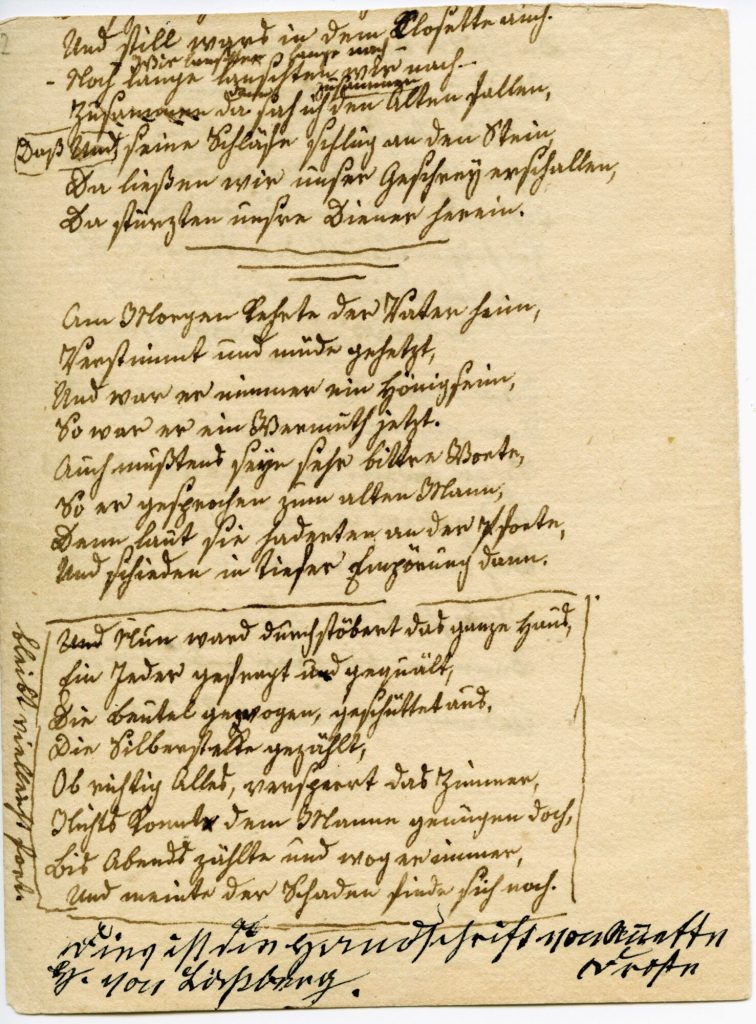 Und still wards in dem Closette auch.
Wir lauschten lange nach
- Noch lange lauschten wir nach -
zusammen
Zusammen da sah ich den Alten fallen,
Daß Und seine Schläfe schlug an den Stein,
Da ließen wir unser Geschrey erschallen,
Da stürzten unsre Diener herein.
Am Morgen kehrte der Vater heim,
Verstimmt und müde gehetzt,
Und war er nimmer ein Honigseim,
So war er ein Wermuth jetzt.
Auch mußtens seyn sehr bittre Worte,
So er gesprochen zum alten Mann,
Denn laut sie haderten an der Pforte,
Und schieden in tiefer Empörung dann.
Und Nun ward durchstöbert das ganze Haus,
Ein Jeder gefragt und gequält,
Die Beutel gewogen, geschüttet aus,
Die Silberstücke gezählt,
Ob richtig Alles, versperrt das Zimmer,
Nichts konnte dem Manne genügen doch,
Bis Abends zählte und wog er immer,
Und meinte der Schaden finde sich noch.
bleibt vielleicht fort.
Dies ist die Handschrift von Annette
Droste
von Laßberg.